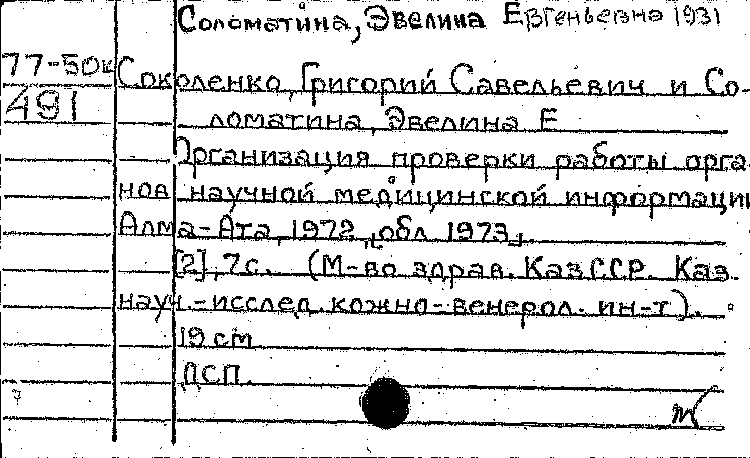 Соломатина, Эвелина Евгеньевна 1931
77-50к Соколенко, Григорий Савельевич и Со-
491 ломатина, Эвелина Е
Организация проверки работы орга-
нов научной медицинской информации
Алма-Ата, 1972, [обл. 1973].
[2], 7 с. (М-во здрав. КазССР. Каз.
науч.-исслед. кожно-венерол. ин-т).
19 см
ДСП.